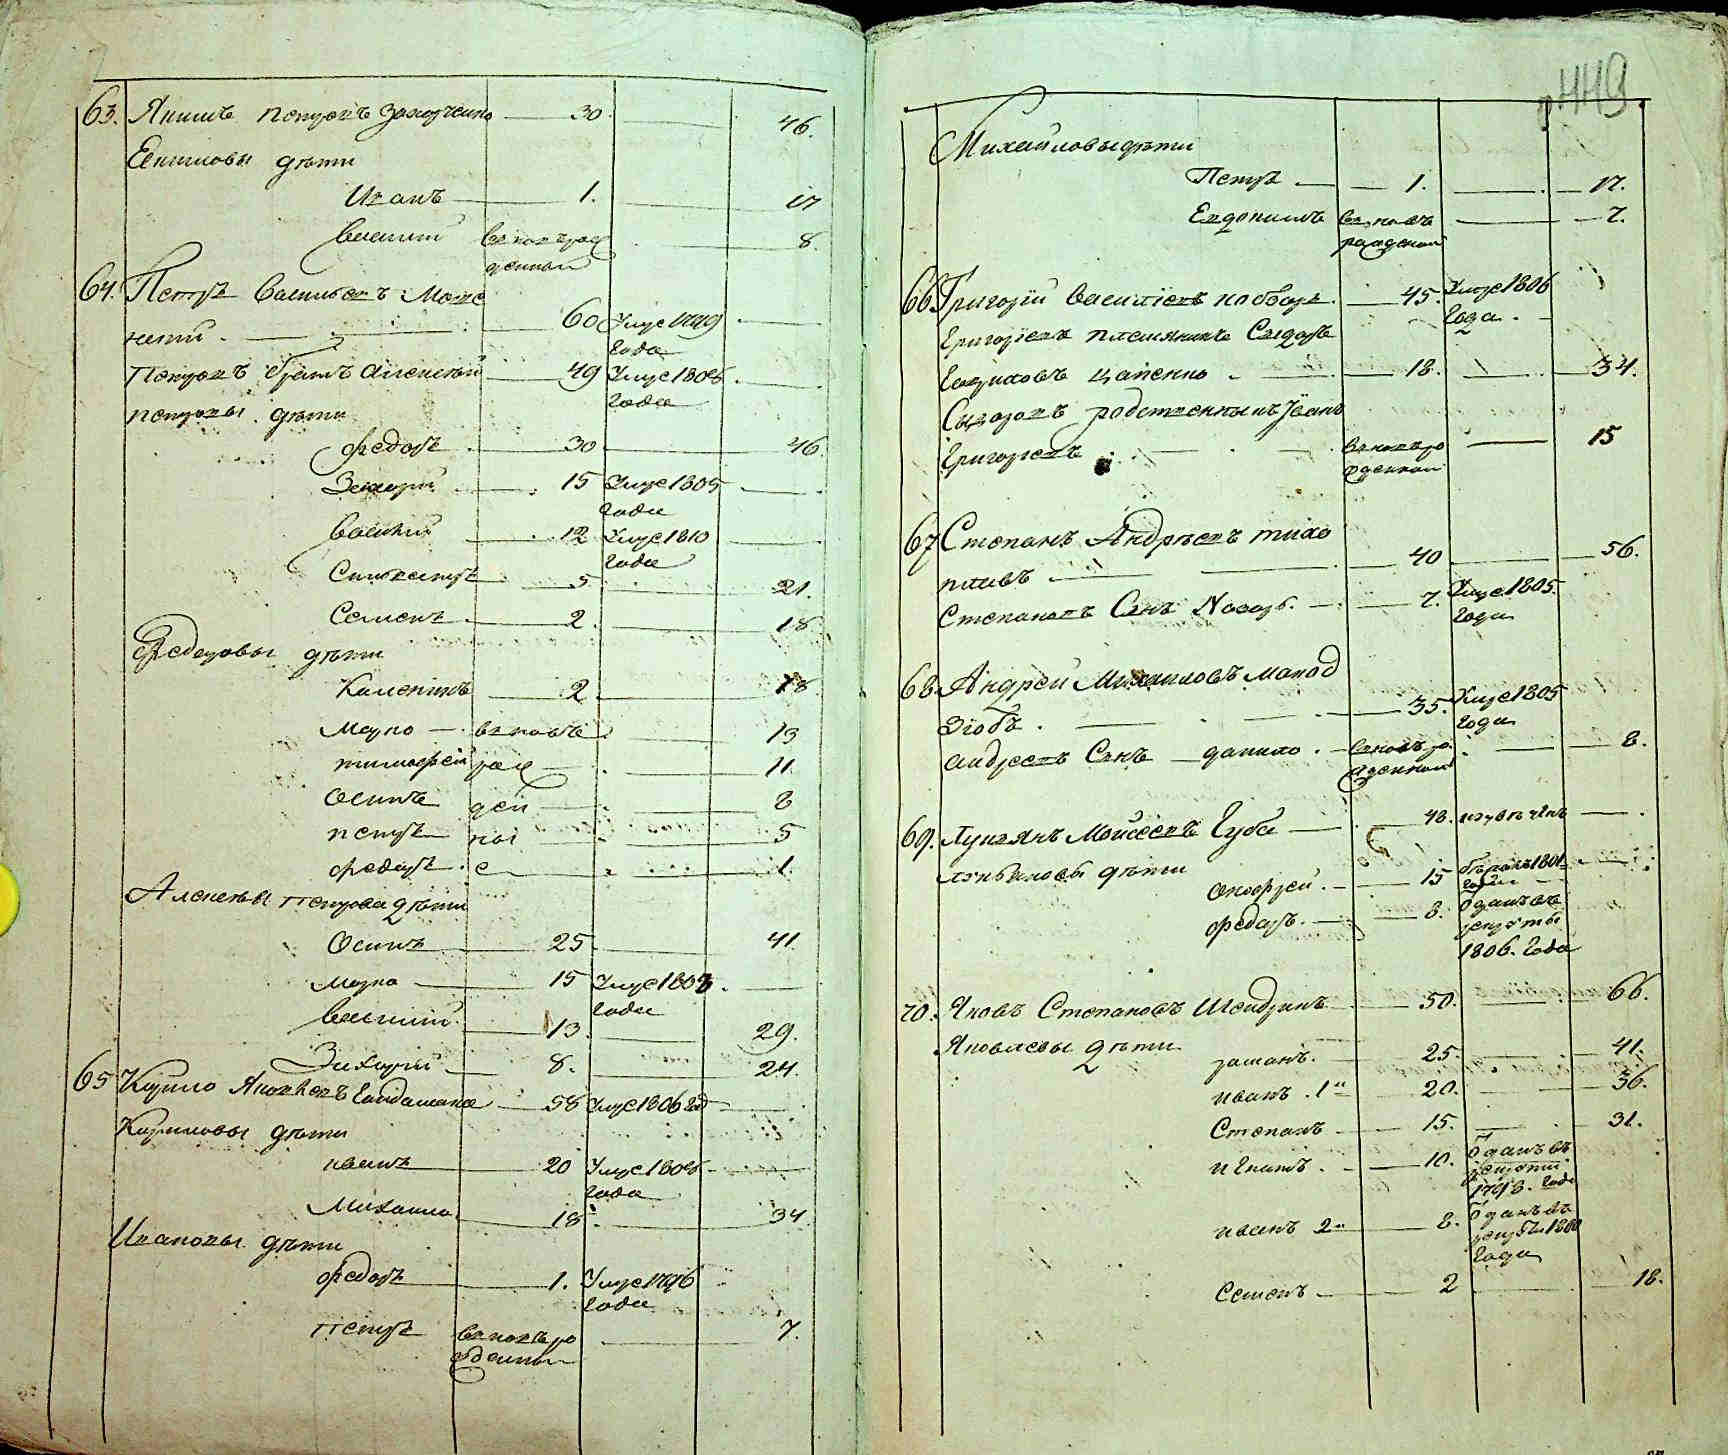 63. Якимъ Петровъ Захарченко 30 46.
Екимовы дѣти
Иванъ 1. 17
Василий вновь рож 8.
денной
64. Петръ Васильевъ
60 Умре 1799
года
Петровъ братъ Алексѣй 49 Умре 1806
года
Петровы дѣти
Федоръ 30 46.
Захарий 15 Умре 1805
года
Василий 12 Умре 1810
года
Сильвестръ 5 21.
Семенъ 2. 18
Федоровы дѣти
Калени́къ 2 18
Марко вновѣ 13
тимофей рож 11
Осипъ ден 8
петръ ны 5
федоръ е 1.
Алексѣевы Петрова дѣти
Осипъ 25 41
Марко 15 Умре 1808
года
Василий 13 29.
Захарий 8. 24.
65 Кирило Яковлевъ Гайдамака 58 Умре 1806 год
Кириловы дѣти
иванъ 20 Умре 1806
года
Михаило 18 34
Ивановы дѣти
федоръ 1. Умре 1796
года
петръ вновь ро 7.
жденны
449
Михайловы дѣти
Петръ 1. 17.
Евдокимъ вновь 7.
рожденной
66. Григорий Василіевъ 45. Умре 1806
года
Григоріевъ племянникъ Сидоръ
18. 34.
Сидоровъ родственникъ Іванъ
Григорьевъ вновь ро 15
жденной
67 Степанъ Андрѣевъ тихо
40 56.
Степановъ Сынъ Назаръ. 7. Умре 1805.
года
68. Андрей Михаиловъ Молод
зіобъ 35. Умре 1805
года
андреевъ Сынъ данило вновь ро 8.
жденной
69. Лукьянъ Моисеевъ Губа 48.
лукьяновы дѣти
Онофрей 15 1801
года
федоръ. 8. Отданъ въ
рекруты
1806. года
70. Яковъ Степановъ Шендринъ 50. 66.
Яковлевы дѣти
романъ. 25. 41.
иванъ 1й 20. 36.
Степанъ 15. 31.
игнатъ 10. Отданъ въ
рекруты
1798. года
иванъ 2й 8. Отданъ въ
рекрут. 1800
года
Семенъ 2 18.